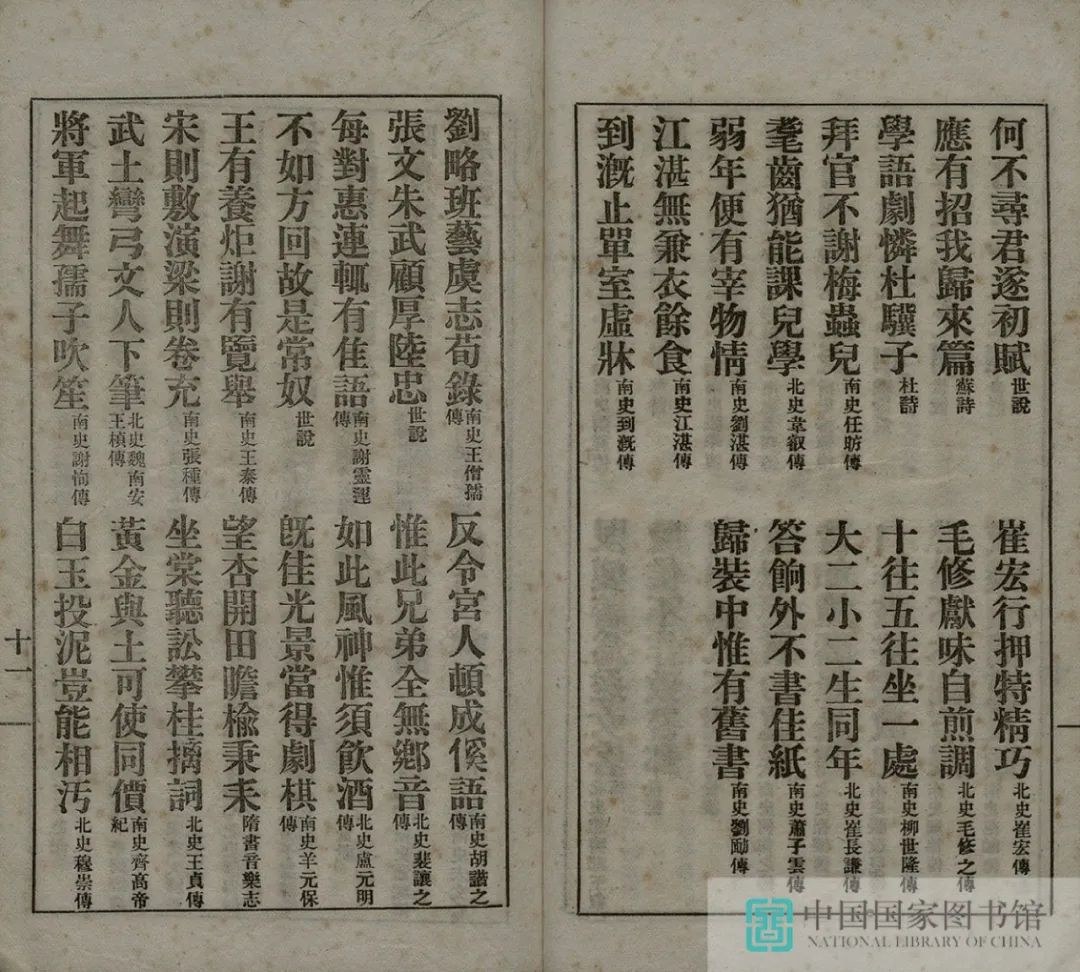 何不尋君遂初賦 世說 崔宏行押特精巧 北史崔宏傳
應有招我歸來篇 蘇詩 毛修獻味白煎調 北史毛修之傳
學語劇憐杜驥子 杜詩 十往五往坐一處 南史柳世隆傳
拜官不謝梅蟲兒 南史任昉傳 大二小二生同年 北史崔長謙傳
耄齒猶能課兒學 北史韋叡傳 答餉外不書佳紙 南史蕭子雲傳
弱年便有宰物情 南史劉湛傳 歸裝中惟有舊書 南史劉勔傳
江湛無兼衣餘食 南史江湛傳
到溉止單室虛牀 南史到溉傳
劉略班藝虞志荀錄 南史王僧孺傳 反令宮人頓成傒語 南史胡諧之傳
張文朱武顧厚陸忠 世說 惟此兄弟全無鄉音 北史裴讓之傳
每對惠連輒有佳語 南史謝靈運傳 如此風神惟須飲酒 北史盧元明傳
不如方回故是常奴 世說 既佳光景當得劇棋 南史羊元保傳
王有養炬謝有覽舉 南史王泰傳 望杏開田瞻榆秉耒 隋書音樂志
宋則敷演梁則卷充 南史張種傳 坐棠聽訟攀桂摛詞 北史王貞傳
武士彎弓文人下筆 北史魏南安王楨傳 黃金與土可使同價 南史齊高帝紀
將軍起舞孺子吹笙 南史謝恂傳 白玉投泥豈能相汚 北史穆崇傳
十一
中国国家图书馆
NATIONAL LIBRARY OF CHINA